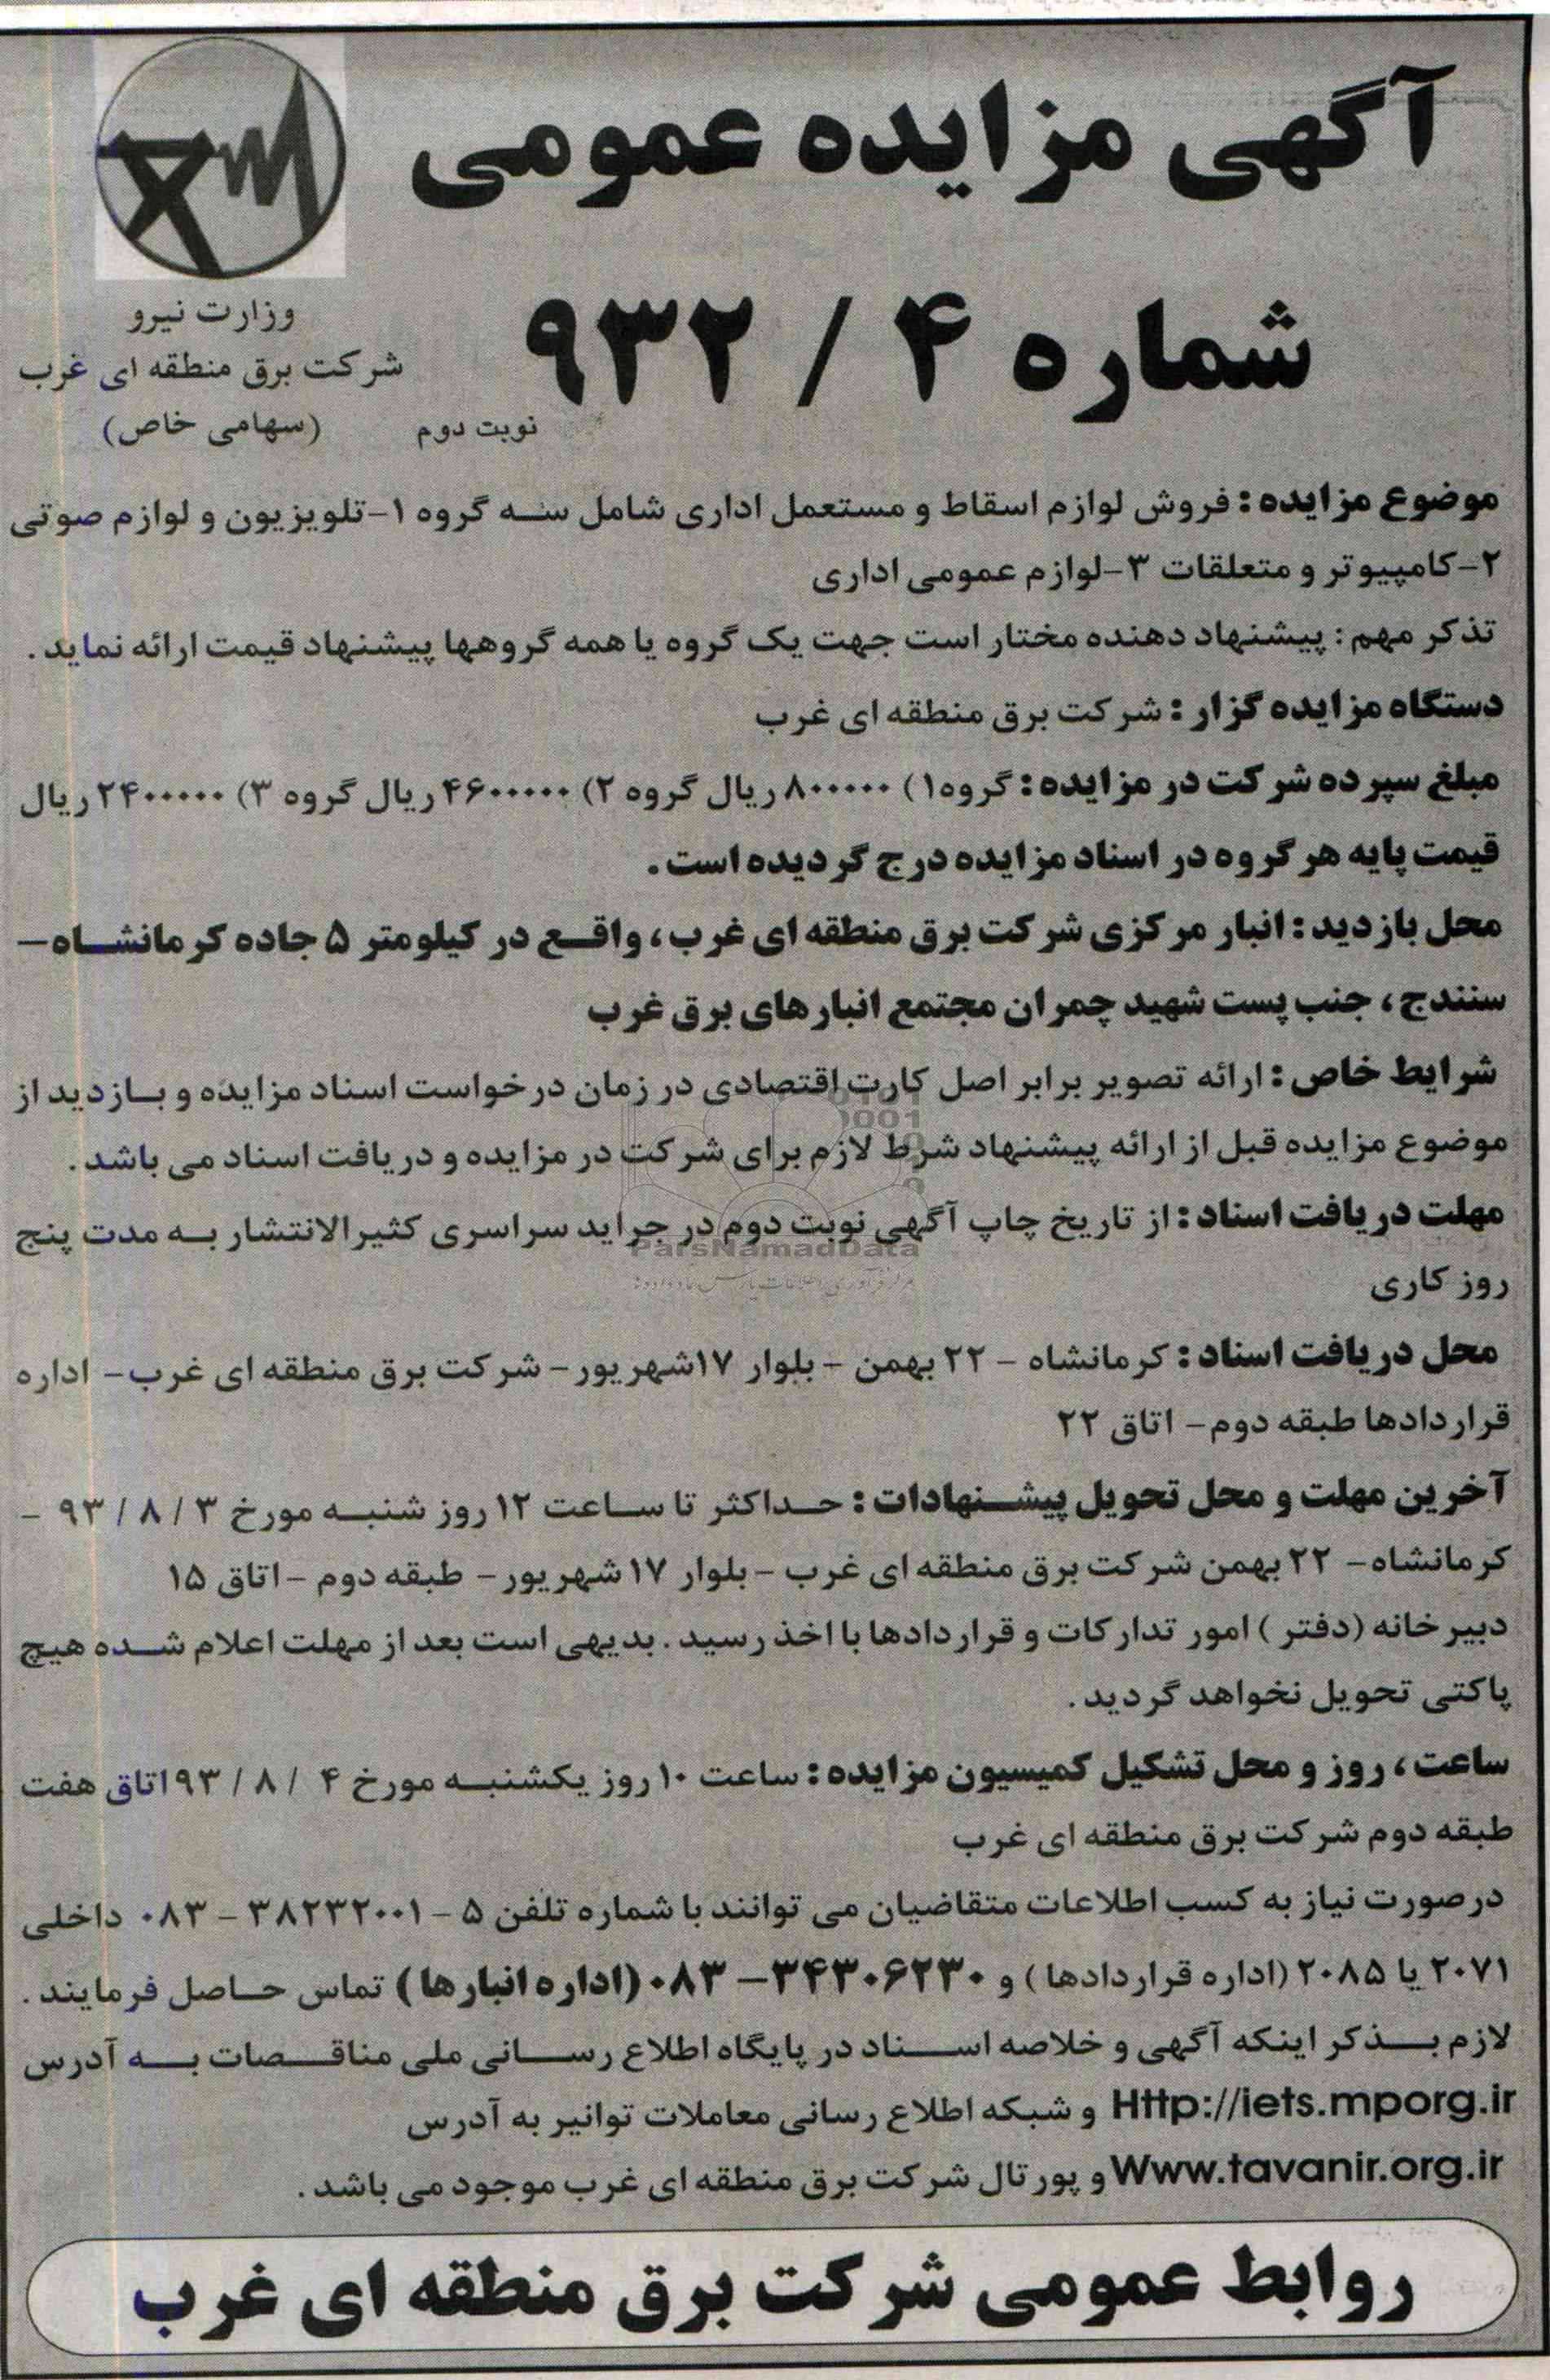 آگهی مزایده عمومی
شماره ۴ / ۹۳۲
وزارت نیرو
شرکت برق منطقه ای غرب
(سهامی خاص)
نوبت دوم
موضوع مزایده: فروش لوازم اسقاط و مستعمل اداری شامل سه گروه ۱-تلویزیون و لوازم صوتی
۲-کامپیوتر و متعلقات ۳-لوازم عمومی اداری
تذکر مهم: پیشنهاد دهنده مختار است جهت یک گروه یا همه گروهها پیشنهاد قیمت ارائه نماید.
دستگاه مزایده گزار: شرکت برق منطقه ای غرب
مبلغ سپرده شرکت در مزایده: گروه۱) ۸۰۰۰۰۰ ریال گروه ۲) ۴۶۰۰۰۰۰ ریال گروه ۳) ۲۴۰۰۰۰۰ ریال
قیمت پایه هر گروه در اسناد مزایده درج گردیده است.
محل بازدید: انبار مرکزی شرکت برق منطقه ای غرب، واقع در کیلومتر ۵ جاده کرمانشاه-
سنندج، جنب پست شهید چمران مجتمع انبارهای برق غرب
شرایط خاص: ارائه تصویر برابر اصل کارت اقتصادی در زمان درخواست اسناد مزایده و بازدید از
موضوع مزایده قبل از ارائه پیشنهاد شرط لازم برای شرکت در مزایده و دریافت اسناد می باشد.
مهلت دریافت اسناد: از تاریخ چاپ آگهی نوبت دوم در جراید سراسری کثیرالانتشار به مدت پنج
روز کاری
ParsNamadData
محل دریافت اسناد: کرمانشاه - ۲۲ بهمن - بلوار ۱۷شهریور- شرکت برق منطقه ای غرب- اداره
قراردادها طبقه دوم- اتاق ۲۲
آخرین مهلت و محل تحویل پیشنهادات: حداکثر تا ساعت ۱۲ روز شنبه مورخ ۳ / ۸ / ۹۳ -
کرمانشاه- ۲۲ بهمن شرکت برق منطقه ای غرب - بلوار ۱۷ شهریور- طبقه دوم -اتاق ۱۵
دبیرخانه (دفتر) امور تدارکات و قراردادها با اخذ رسید. بدیهی است بعد از مهلت اعلام شده هیچ
پاکتی تحویل نخواهد گردید.
ساعت، روز و محل تشکیل کمیسیون مزایده: ساعت ۱۰ روز یکشنبه مورخ ۴ / ۸ / ۹۳ اتاق هفت
طبقه دوم شرکت برق منطقه ای غرب
درصورت نیاز به کسب اطلاعات متقاضیان می توانند با شماره تلفن ۵ - ۳۸۲۳۲۰۰۱ - ۰۸۳ داخلی
۲۰۷۱ یا ۲۰۸۵ (اداره قراردادها) و ۳۴۳۰۶۲۳۰- ۰۸۳ (اداره انبارها) تماس حاصل فرمایند.
لازم بذکر اینکه آگهی و خلاصه اسناد در پایگاه اطلاع رسانی ملی مناقصات به آدرس
Http://iets.mporg.ir و شبکه اطلاع رسانی معاملات توانیر به آدرس
Www.tavanir.org.ir و پورتال شرکت برق منطقه ای غرب موجود می باشد.
روابط عمومی شرکت برق منطقه ای غرب